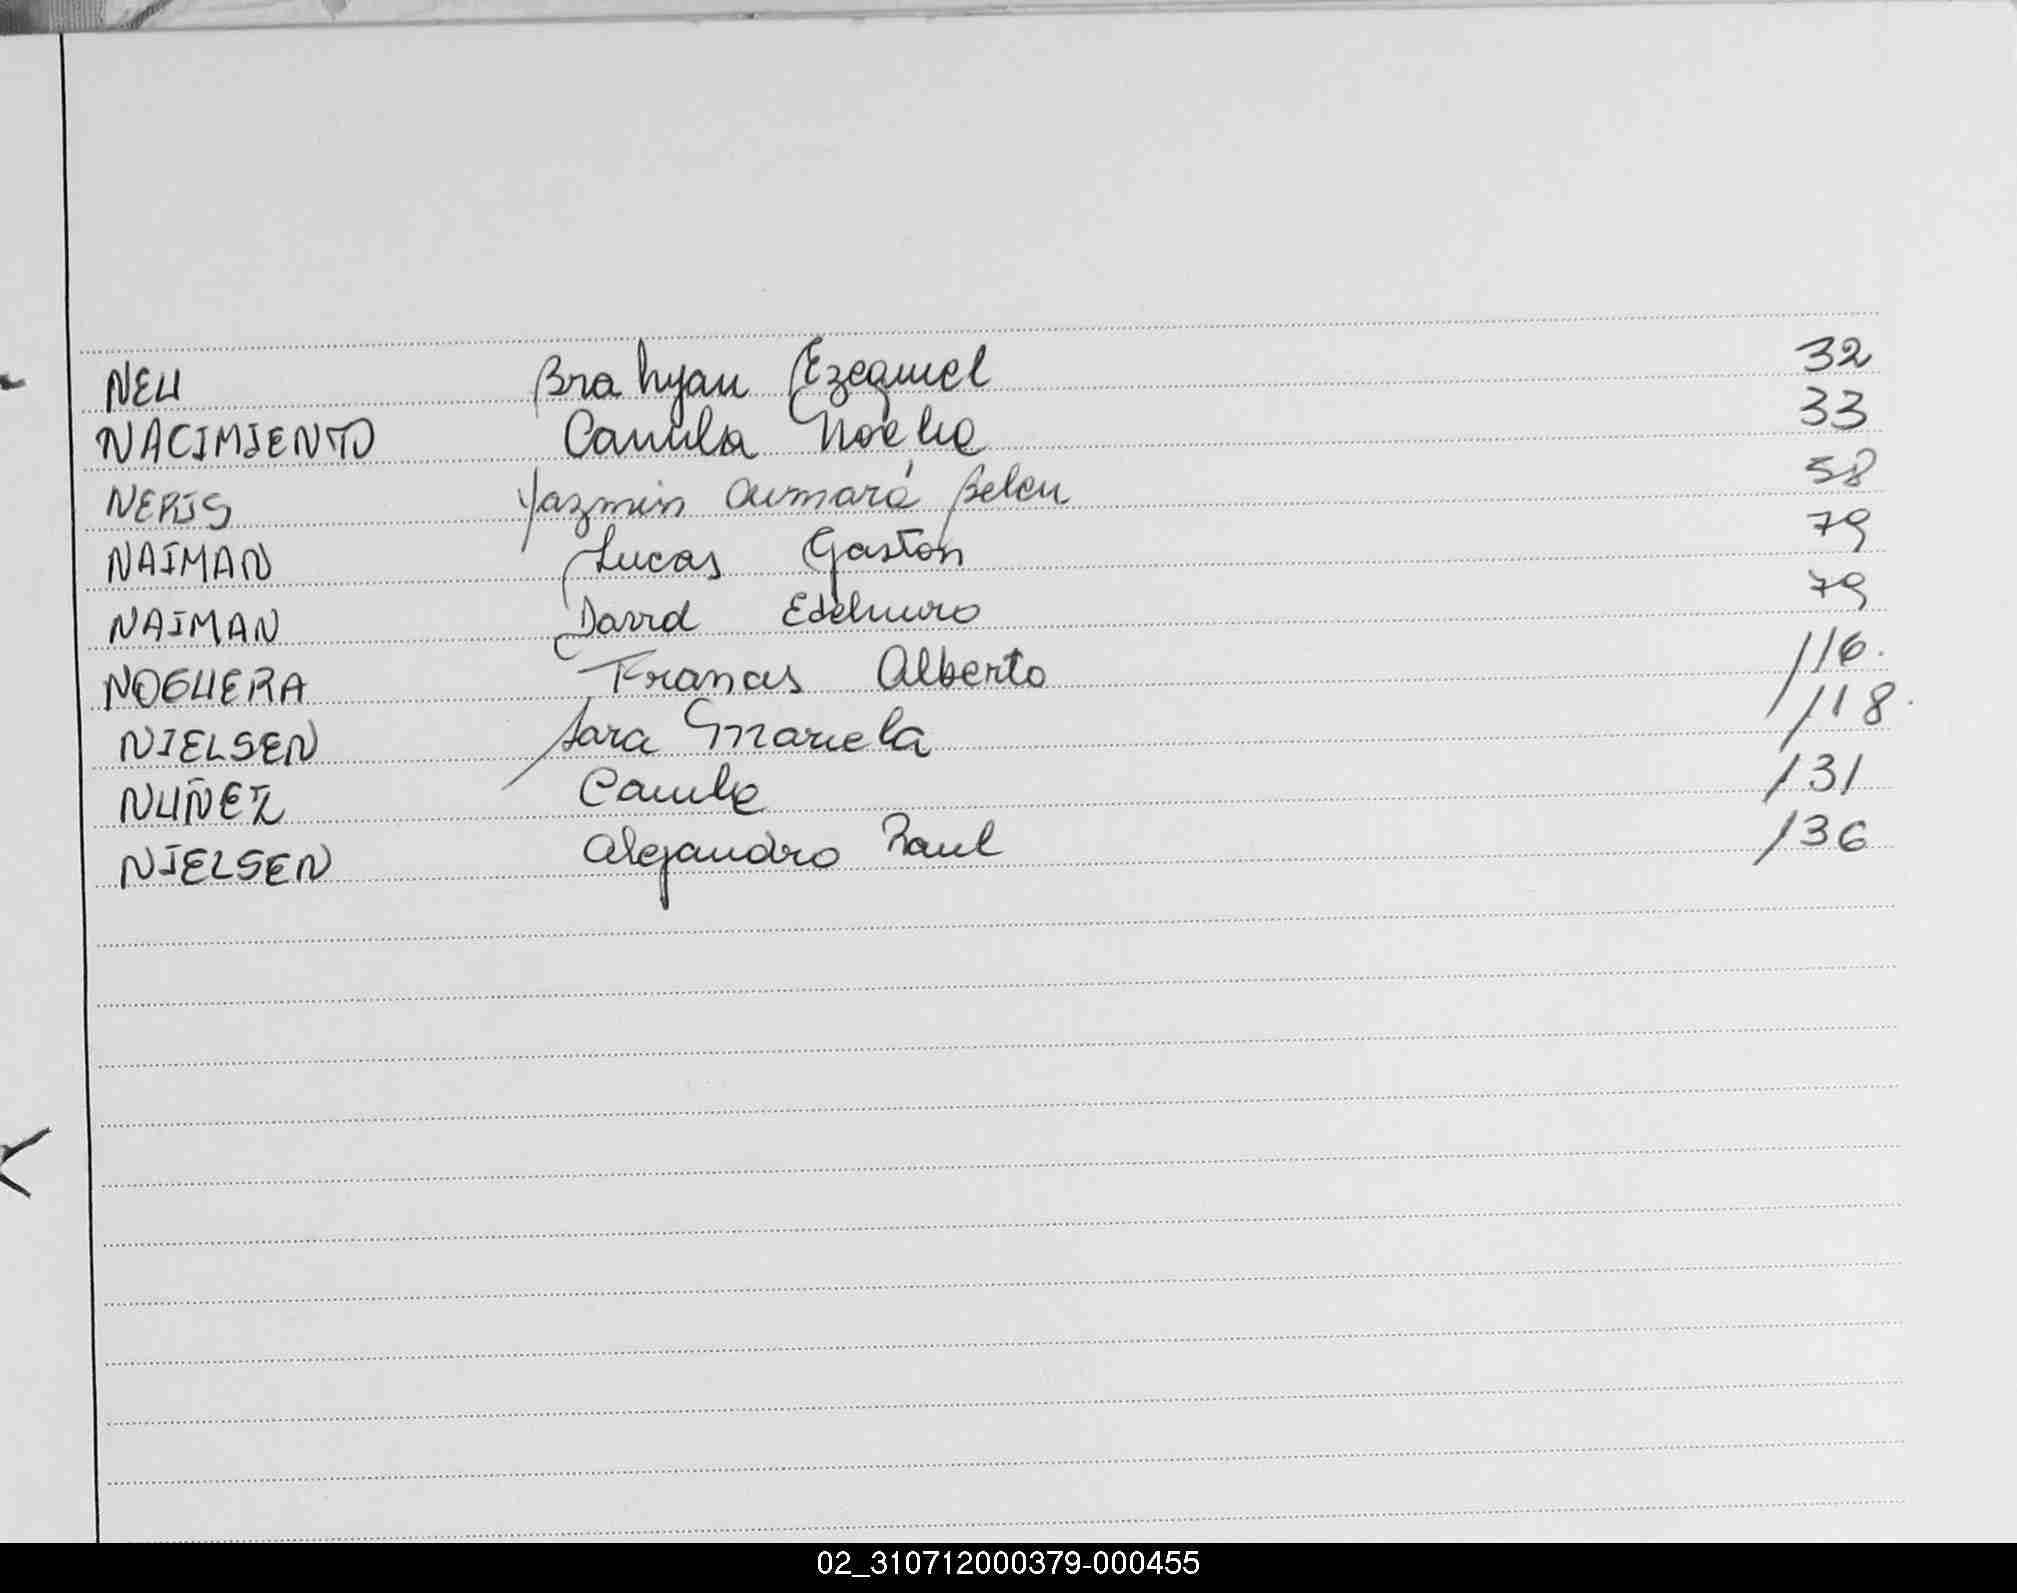 NEU Brahyan Ezequiel 32
NACIMIENTO Camila Noelia 33
NERIS Yazmin Aimará Belen 58
NAIMAN Lucas Gastón 79
NAIMAN David Edelmiro 79
NOGUERA Francis Alberto 116.
NIELSEN Sara Mariela 118.
NUÑEZ Camila 131
NIELSEN Alejandro Raul 136
02_310712000379-000455